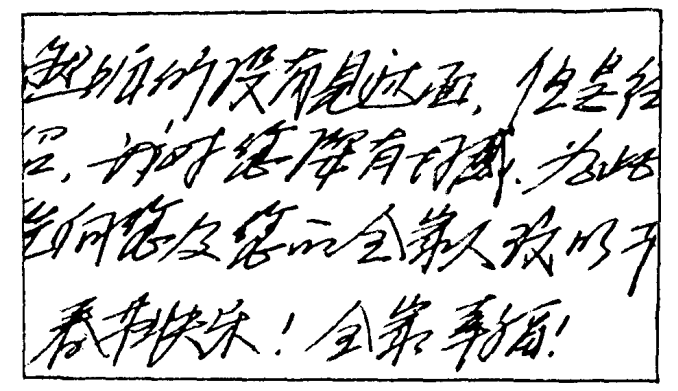 咱们没有见过面，但是经
绍，我对您深有好感，为此
先向您及您的全家人致以
春节快乐！全家幸福！